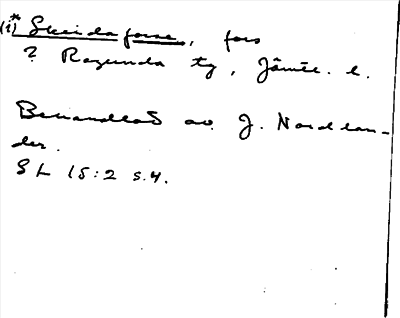 (i)* Skeidaforse, fors
? Ragunda tg, Jämtl. l.
Behandlat av J. Nordlan-
der.
SL 15:2 s.4.